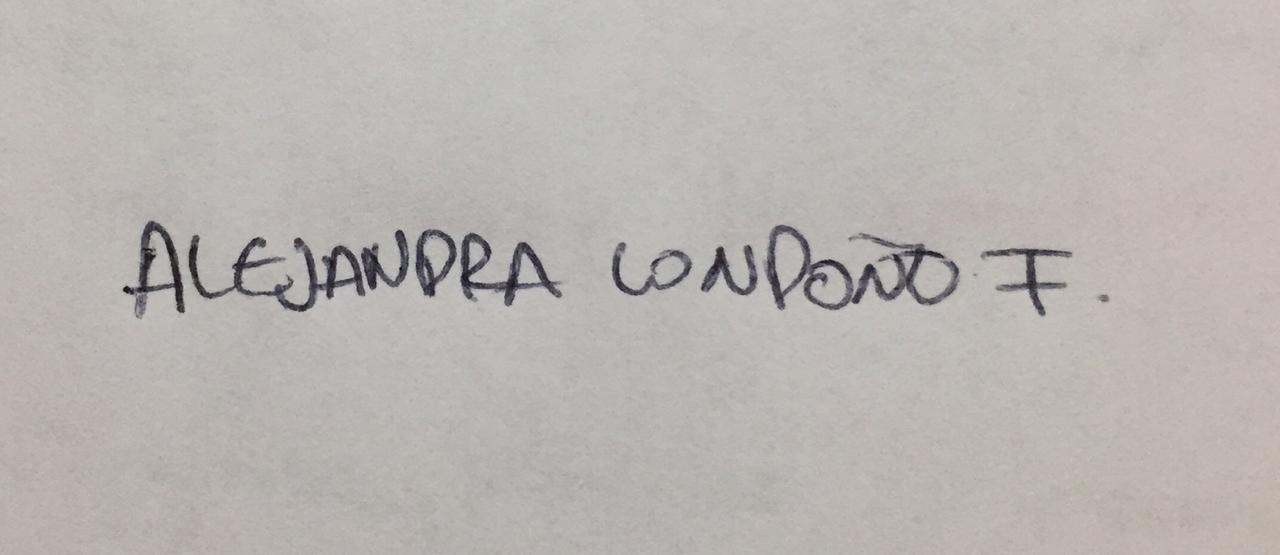 ALEJANDRA LONDOÑO I.